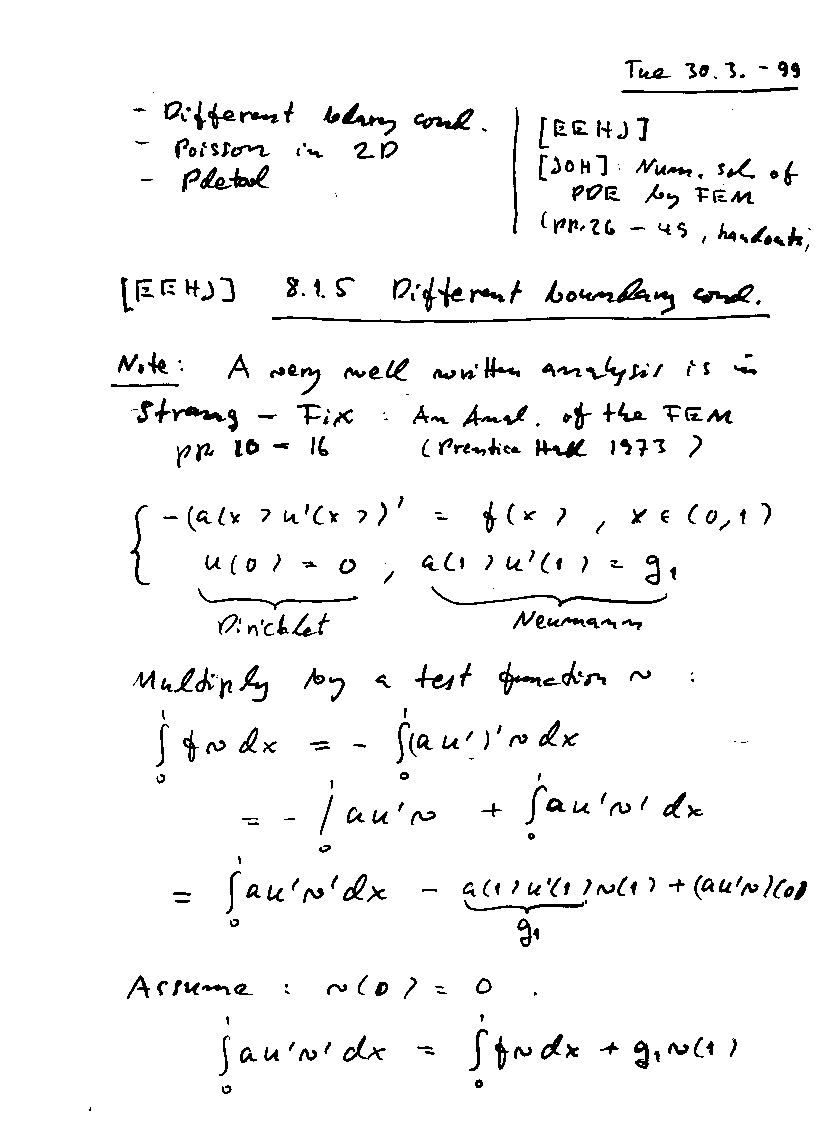 Tue 30.3. - 99
- Different bdary cond.
- Poisson in 2D
- Pdetool
[EEHJ]
[JOH]: Num. sol. of
PDE by FEM
(pp. 26 - 45, handouts)
[EEHJ] 8.1.5 Different boundary cond.
Note: A very well written analysis is in
Strang - Fix : An Anal. of the FEM
pp 10 - 16 (Prentice Hall 1973)
{ -(a(x)u'(x))' = f(x), x ∈ (0,1)
u(0) = 0, a(1)u'(1) = g₁
Dirichlet Neumann
Multiply by a test function v :
∫₀¹ f v dx = - ∫₀¹ (au')' v dx
= - |₀¹ au'v + ∫₀¹ au'v' dx
= ∫₀¹ au'v' dx - a(1)u'(1)v(1) + (au'v)(0)
g₁
Assume : v(0) = 0 .
∫₀¹ au'v' dx = ∫₀¹ f v dx + g₁v(1)